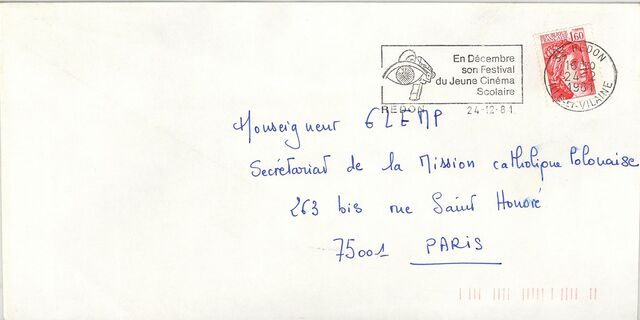 En Décembre
son Festival
du Jeune Cinéma
Scolaire
REDON 24-12-81
REDON
24-12
VILAINE
1,60
Monseigneur GLEMP
Secrétariat de la Mission catholique Polonaise
263 bis rue Saint Honoré
75001 PARIS